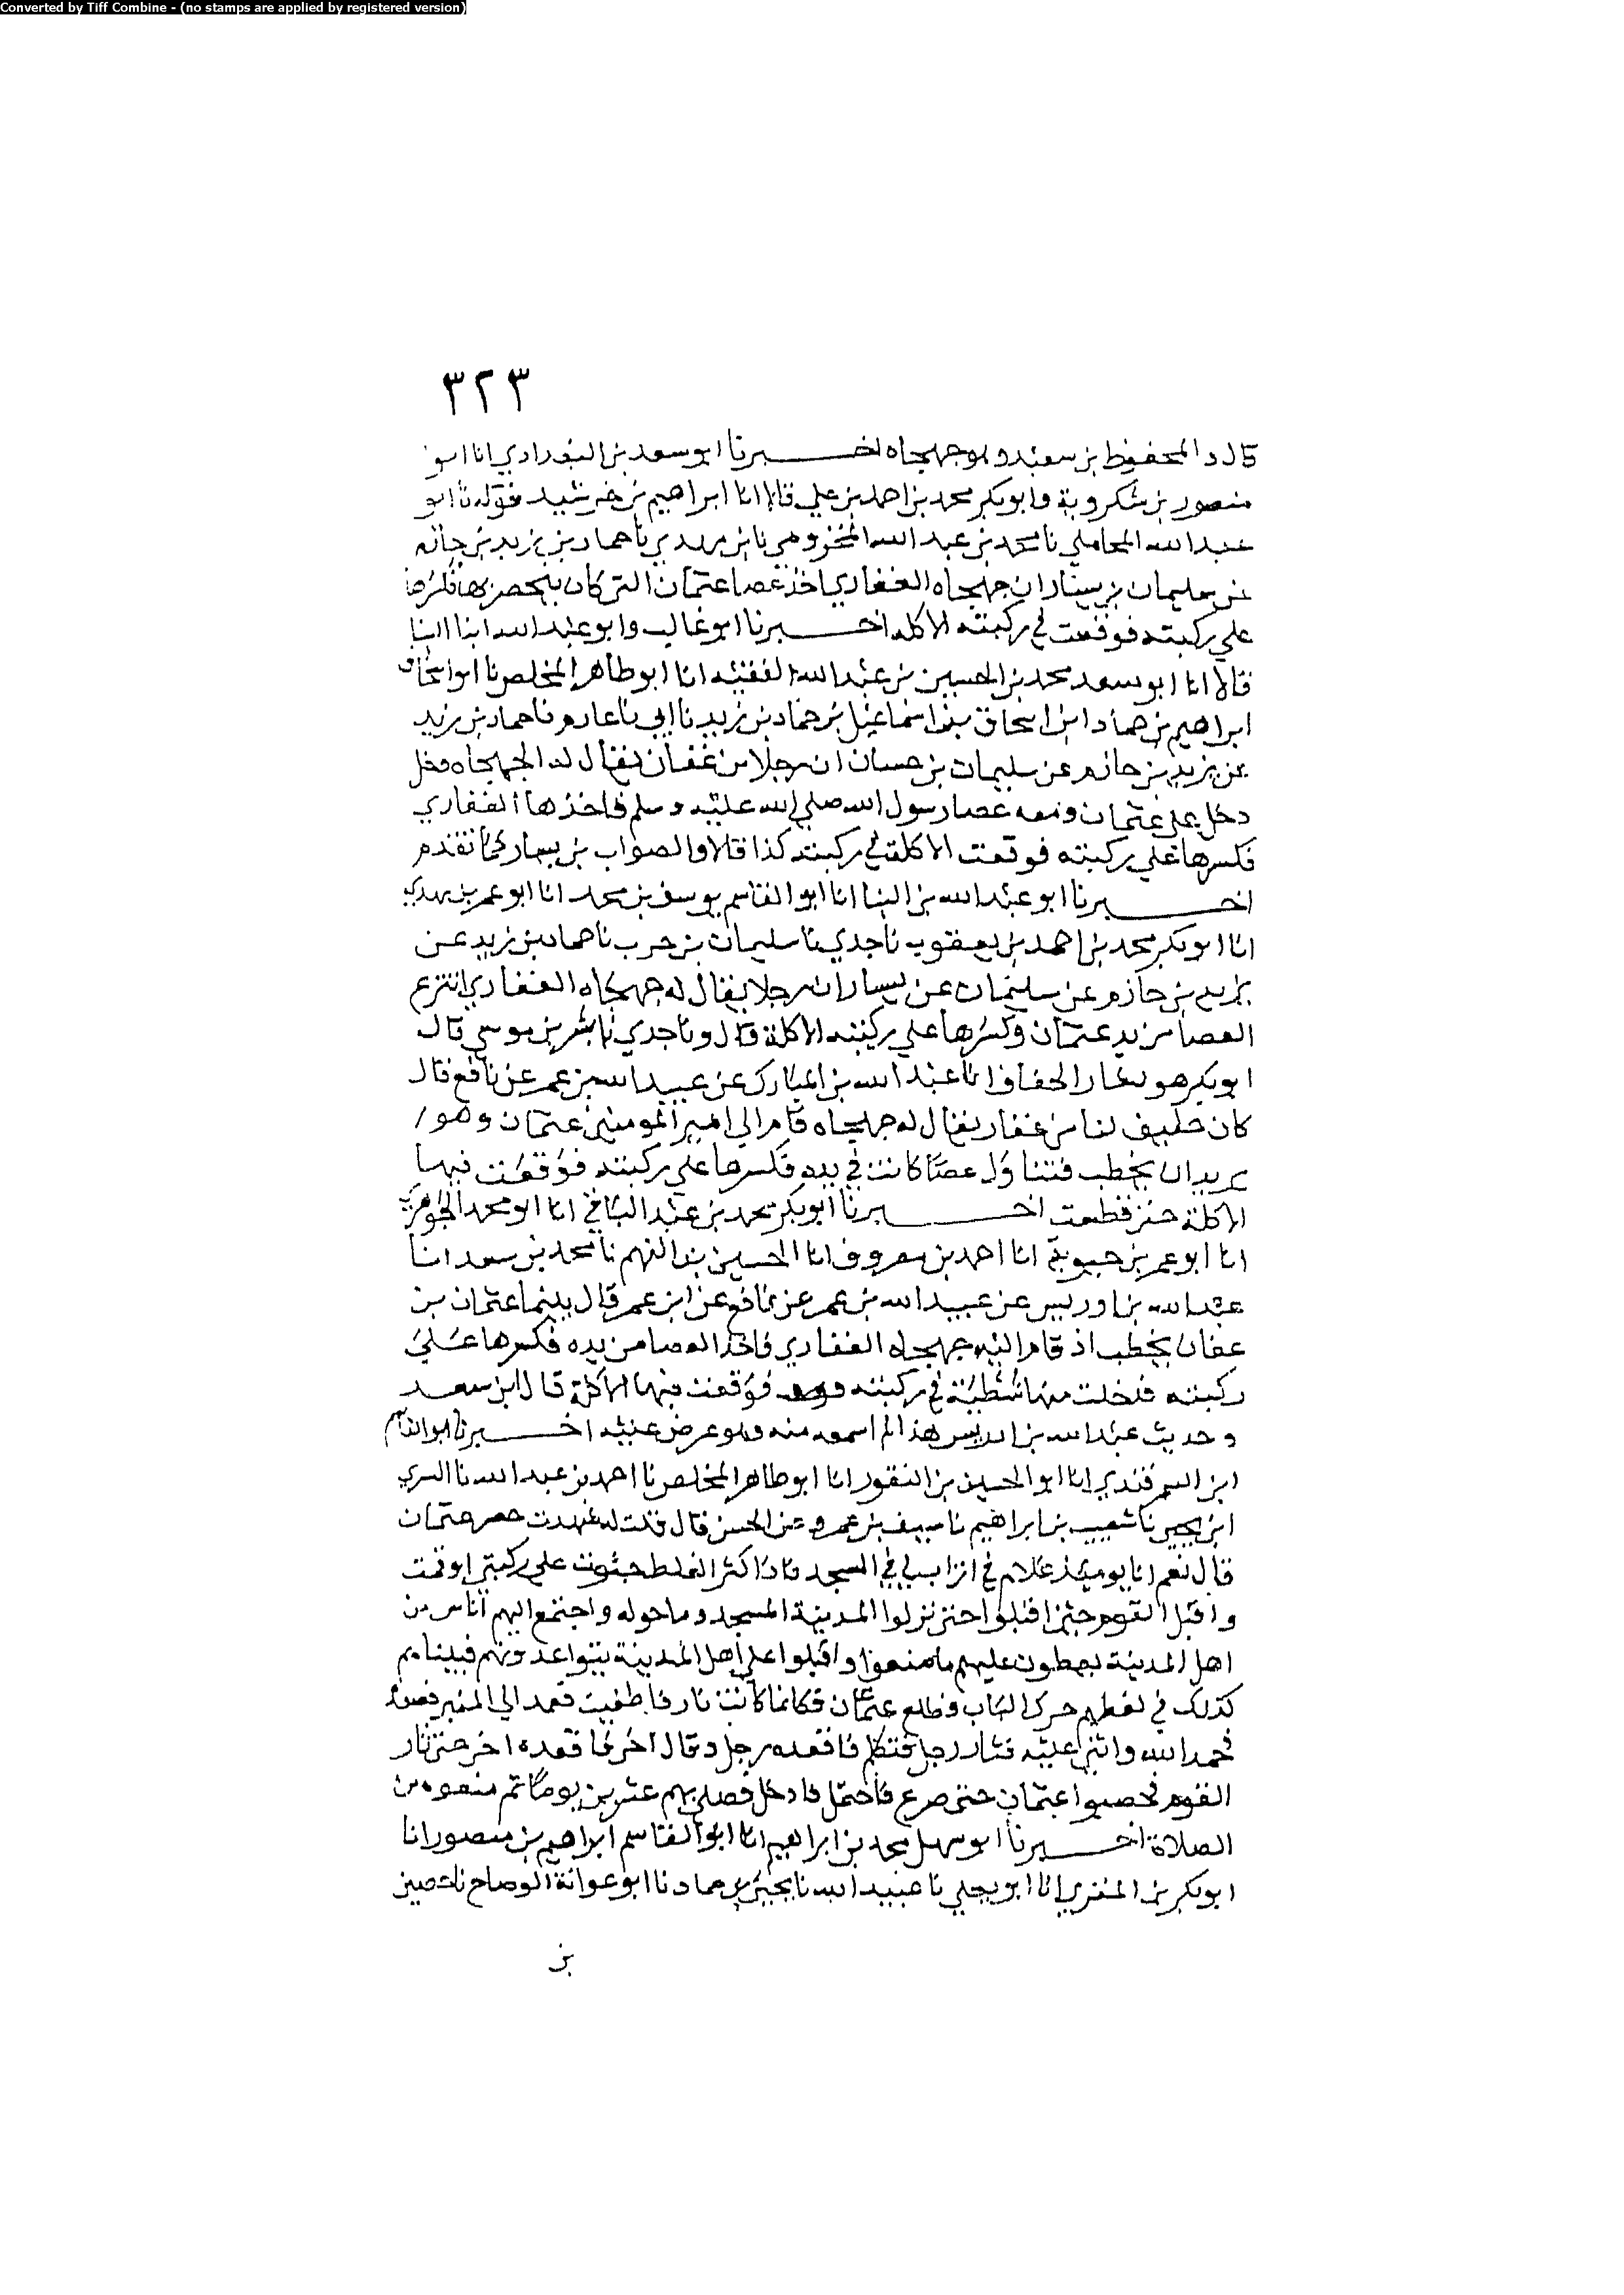 Converted by Tiff Combine - (no stamps are applied by registered version)
٣٢٣
قال والمحفوظ بن سعيد وهو جهجاه اخبرنا ابو سعد بن البغدادي انا ابو
منصور بن شكروية وابو بكر محمد بن احمد بن علي قالا انا ابراهيم بن خرشيد قوله نا ابو
عبد الله المحاملي نا محمد بن عبد الله المخزومي نا بن مهدي نا حماد بن يزيد بن
عن سليمان بن يسار ان جهجاه الغفاري اخذ عصا عثمان التي كان يتحصر بها فكسرها
علي ركبته فوقعت في ركبته الاكله اخبرنا ابو غالب وابو عبد الله ابنا البنا
قالا انا ابو سعد محمد بن الحسين بن عبد الله الفقيه انا ابو طاهر المخلص نا ابو اسحاق
ابراهيم بن حماد ابن اسحاق بن اسماعيل بن حماد بن زيد نا ابي نا عارم نا حماد بن زيد
عن يزيد بن حازم عن سليمان بن حسان ان رجلا من غفار يقال له الجهجاه دخل
دخل علي عثمان ومعه عصا رسول الله صلي الله عليه وسلم فاخذها الغفاري
فكسرها علي ركبته فوقعت الاكلة في ركبته كذا قالا والصواب بن يسار كما تقدم
اخبرنا ابو عبد الله بن البنا انا ابو القاسم يوسف بن محمد انا ابو عمر بن مهدي
انا ابو بكر محمد بن احمد بن يعقوب نا جدي نا سليمان بن حرب نا حماد بن زيد عن
يزيد بن حازم عن سليمان عن يسار ان رجلا يقال له جهجاه الغفاري انتزع
العصا من يد عثمان وكسرها علي ركبته الاكلة قال ونا جدي نا بشر بن موسي قال
ابو بكر هو الخفاف انا عبد الله بن المبارك عن عبيد الله بن عمر عن نافع قال
كان حليف لنا من غفار يقال له جهجاه قام الي امير المومنين عثمان وهو
يريد ان يخطب فتناول عصا كانت في يده فكسرها علي ركبته فوقعت فيها
الاكلة حتى قطعت اخبرنا ابو بكر محمد بن عبد الباقي انا ابو محمد الجوهري
انا ابو عمر بن حيوية انا احمد بن معروف انا الحسين بن الفهم نا محمد بن سعد انا
عبد الله بن ادريس عن عبيد الله بن عمر عن نافع عن ابن عمر قال بينما عثمان بن
عفان يخطب اذ قام اليه جهجاه الغفاري فاخذ العصا من يده فكسرها علي
ركبته فدخلت منها شظية في ركبته فوقعت فيها الاكلة قال ابن سعد
وحديث عبد الله بن ادريس هذا لم اسمعه منه وهو عرض عليه اخبرنا ابو القاسم
ابن السمرقندي انا ابو الحسين بن النقور انا ابو طاهر المخلص نا احمد بن عبد الله نا السري
ابن يحيى نا شعيب بن ابراهيم نا سيف بن عمرو عن الحسن قال قلت له شهدت حصر عثمان
قال نعم انا يوميذ غلام في اتراب لي في المسجد فاذا كثر اللغط جثوت علي ركبتي او قمت
واقبل القوم حين اقبلوا حتى نزلوا المدينة المسجد وما حوله واجتمع اليهم اناس من
اهل المدينة يعظون عليهم ما صنعوا واقبلوا علي اهل المدينة يتواعدونهم فبينا هم
كذلك في لغطهم حول الباب فطلع عثمان فكانما كانت نار فاطفيت فعمد الي المنبر فصعد
فحمد الله واثنى عليه فثار رجل فتكلم فاقعده رجل وقال اخر فاقعده اخر حتى ثار
القوم فحصبوا عثمان حتى صرع فاحتمل فادخل فصلى بهم عشرين يوما ثم منعوه من
الصلاة اخبرنا ابو سهل محمد بن ابراهيم انا ابو القاسم ابراهيم بن منصور انا
ابو بكر بن المقري انا ابو يعلي نا عبيد الله نا يحيى بن حماد نا ابو عوانة الوضاح نا حصين
بن